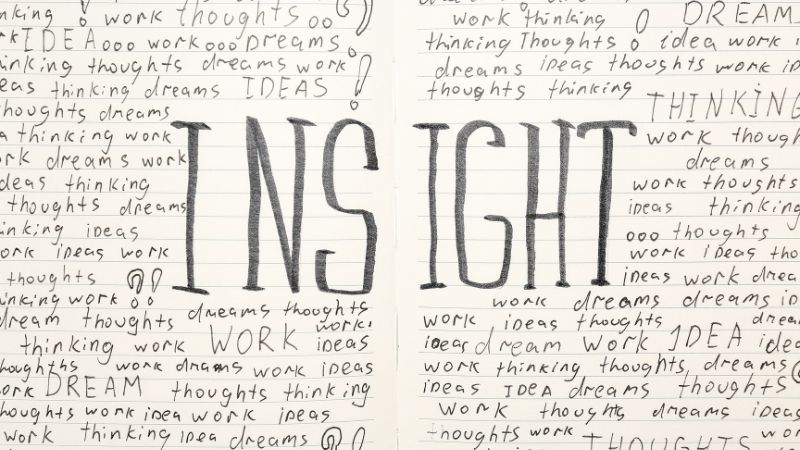 work thoughts oo
IDEA ooo work ooo Dreams
thinking thoughts dreams work
ideas thinking dreams IDEAS
thoughts dreams
a thinking work
work dreams work
ideas thinking
thoughts dreams
thinking ideas
work ideas work
thoughts
thinking work
dream thoughts dreams thoughts
work!
thinking work WORK ideas
work dreams work ideas
work DREAM thoughts thinking
thoughts work idea work ideas
work thinking idea dreams
INSIGHT
work thinking DREAM
thinking Thoughts o idea work
dreams ideas thoughts work
thoughts thinking
THINKING
work
dreams
work thoughts
ideas thinking
ooo thoughts
work ideas
ideas work
work dreams dreams
work ideas thoughts
dream Work IDEA
work thinking thoughts dreams
ideas IDEA dreams thoughts
work thoughts dreams ideas
thoughts work THOUGHTS